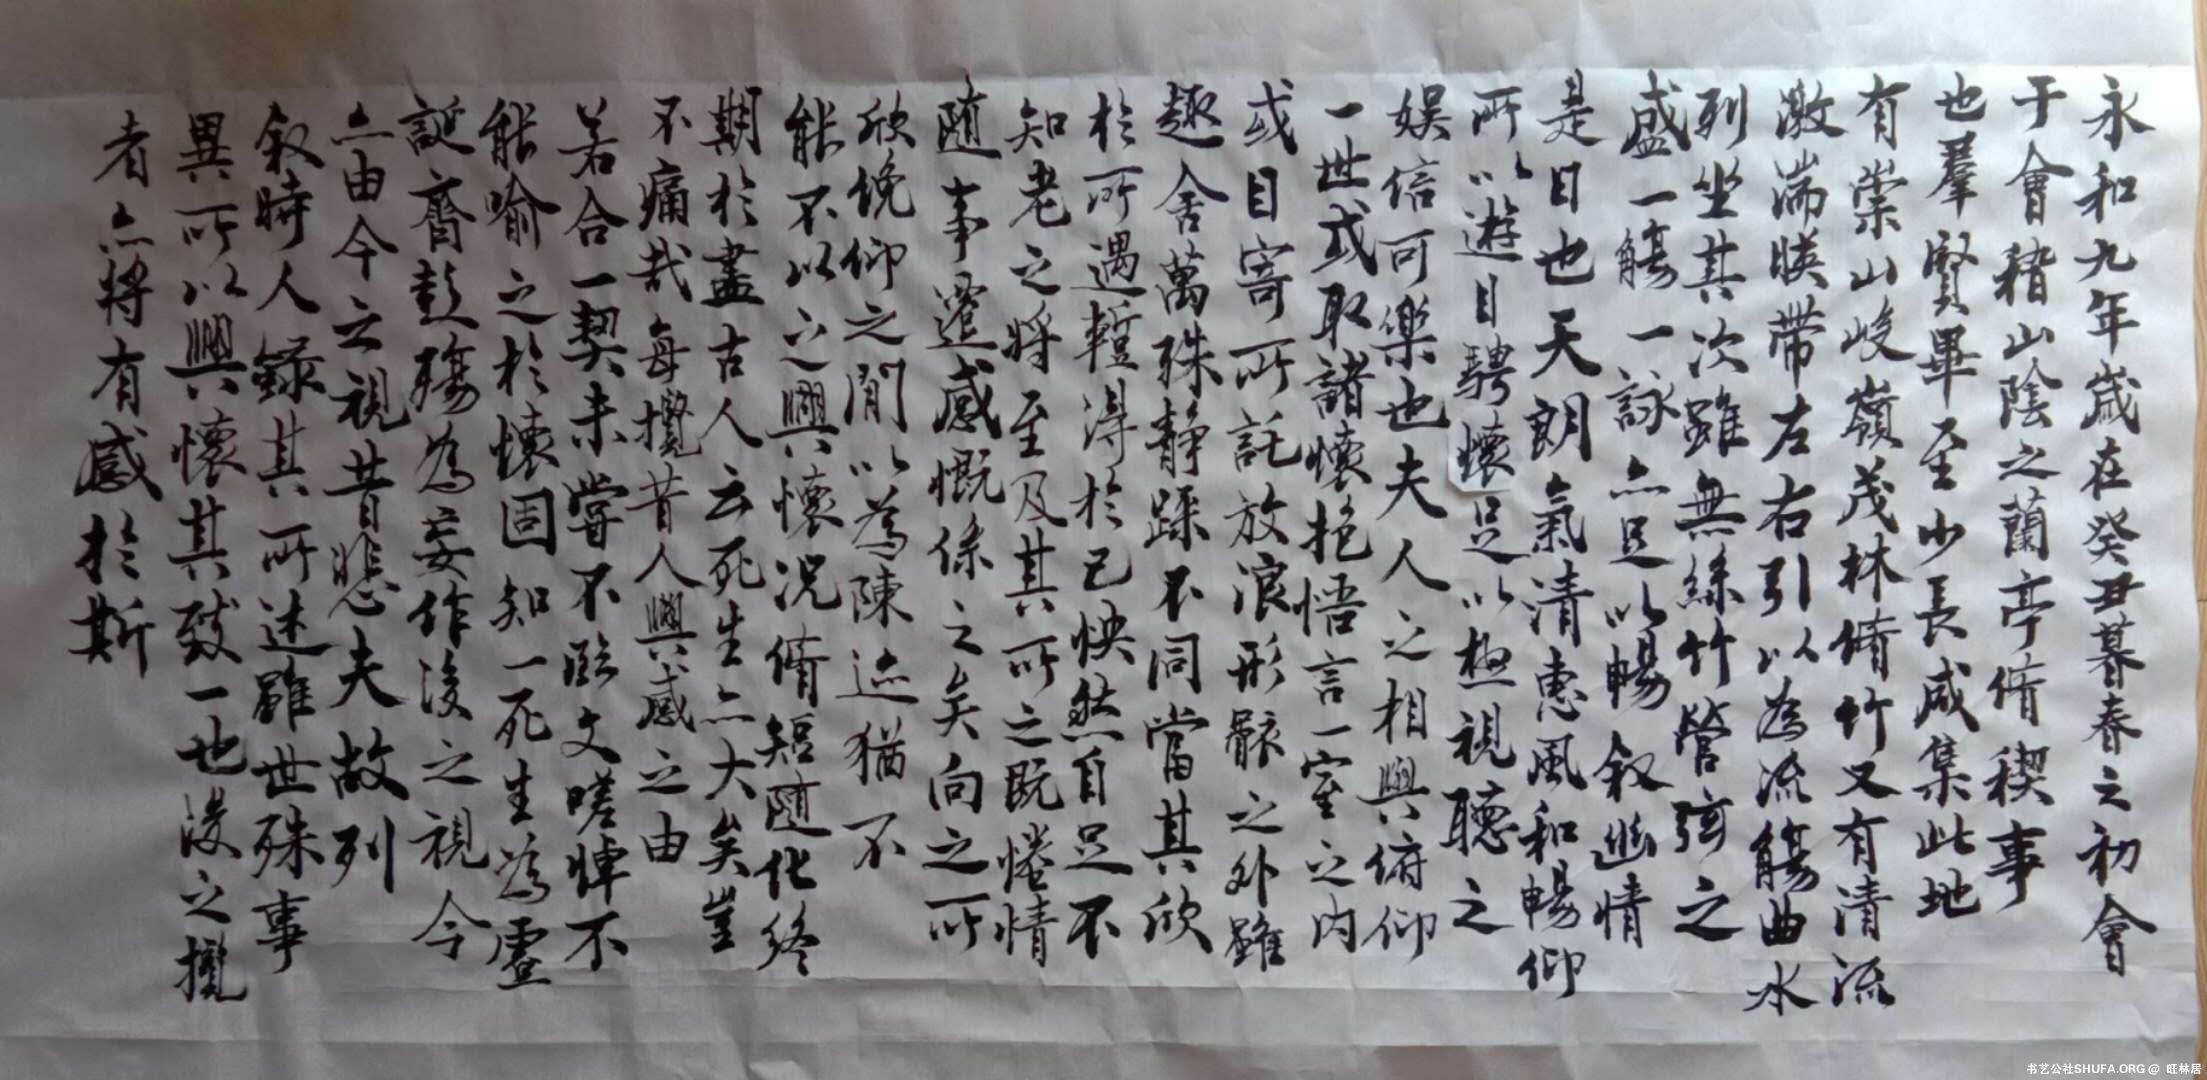 永和九年歲在癸丑暮春之初會
于會稽山陰之蘭亭脩稧事
也羣賢畢至少長咸集此地
有崇山峻嶺茂林脩竹又有清流
激湍暎帶左右引以為流觴曲水
列坐其次雖無絲竹管弦之
盛一觴一詠亦足以暢叙幽情
是日也天朗氣清惠風和暢仰
所以遊目騁懷足以極視聽之
娛信可樂也夫人之相與俯仰
一世或取諸懷抱悟言一室之內
或目寄所託放浪形骸之外雖
趣舍萬殊静躁不同當其欣
於所遇蹔得於己怏然自足不
知老之將至及其所之既惓情
随事遷感慨係之矣向之所
欣俛仰之閒以為陳迹猶不
能不以之興懷況脩短随化終
期於盡古人云死生亦大矣豈
不痛哉每攬昔人興感之由
若合一契未嘗不臨文嗟悼不
能喻之於懷固知一死生為虛
誕齊彭殤為妄作後之視今
亦由今之視昔悲夫故列
叙時人錄其所述雖世殊事
異所以興懷其致一也後之攬
者亦將有感於斯
书艺公社SHUFA.ORG @ 旺林居